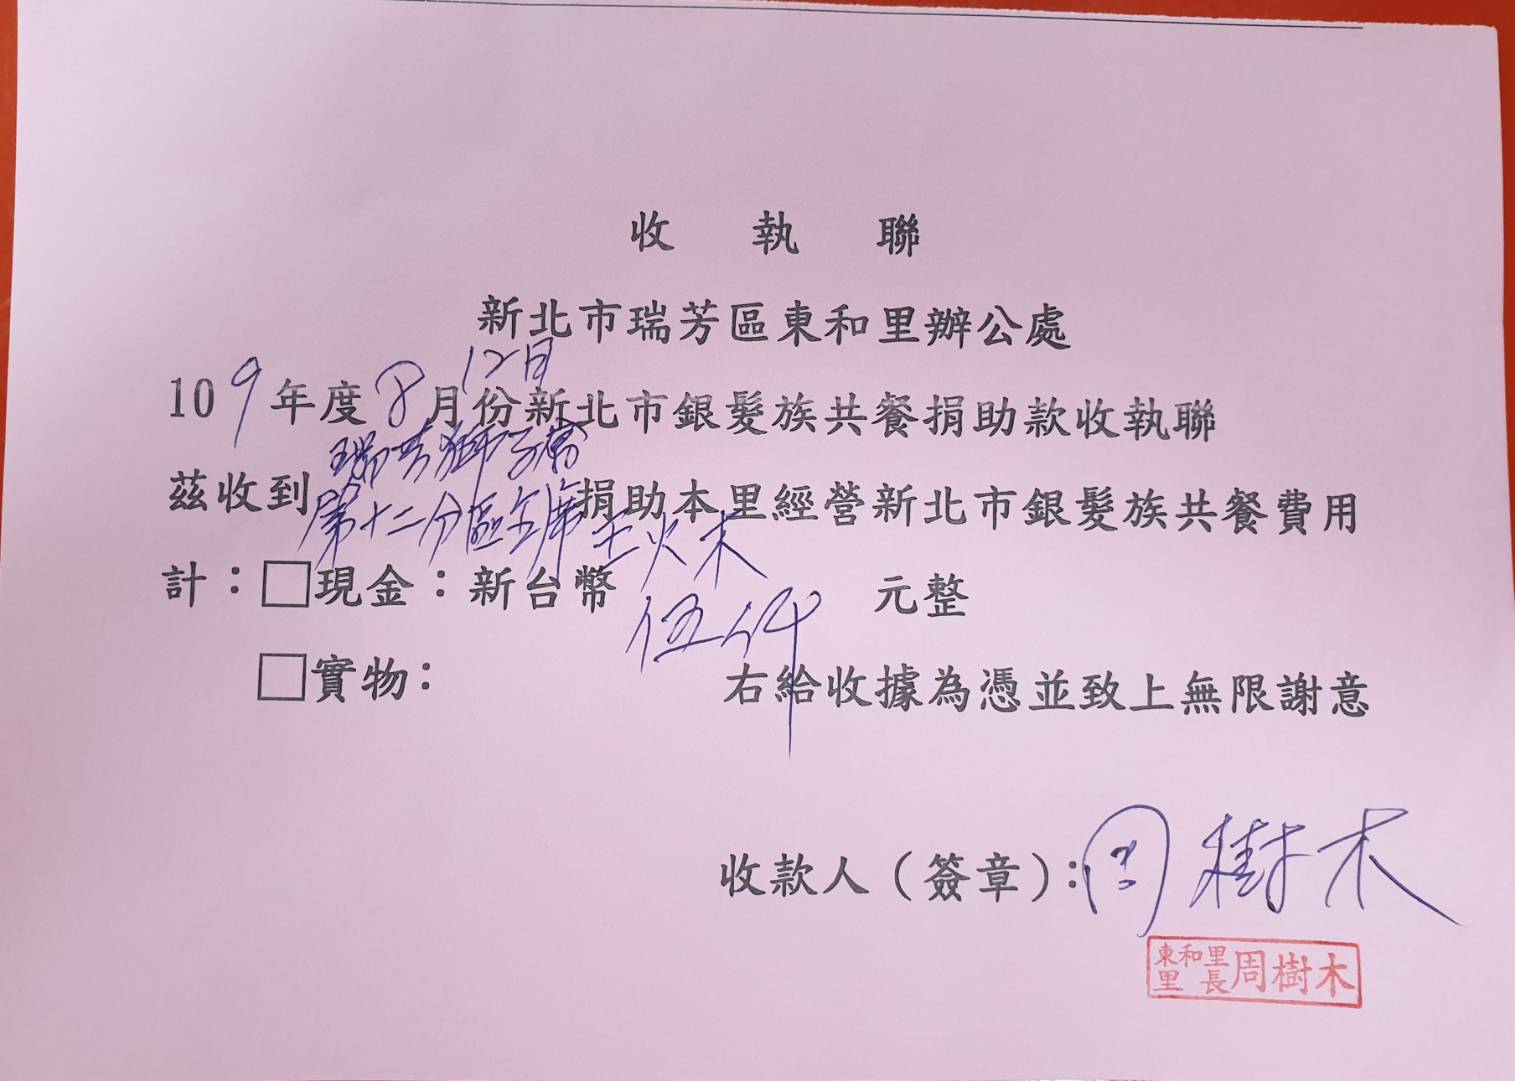 收 執 聯
新北市瑞芳區東和里辦公處
12月
109年度8月份新北市銀髮族共餐捐助款收執聯
瑞芳獅子會
茲收到第十二分區主席王火木捐助本里經營新北市銀髮族共餐費用
計：□現金：新台幣伍仟元整
□實物： 右給收據為憑並致上無限謝意
收款人（簽章）：周樹木
東和里里長周樹木